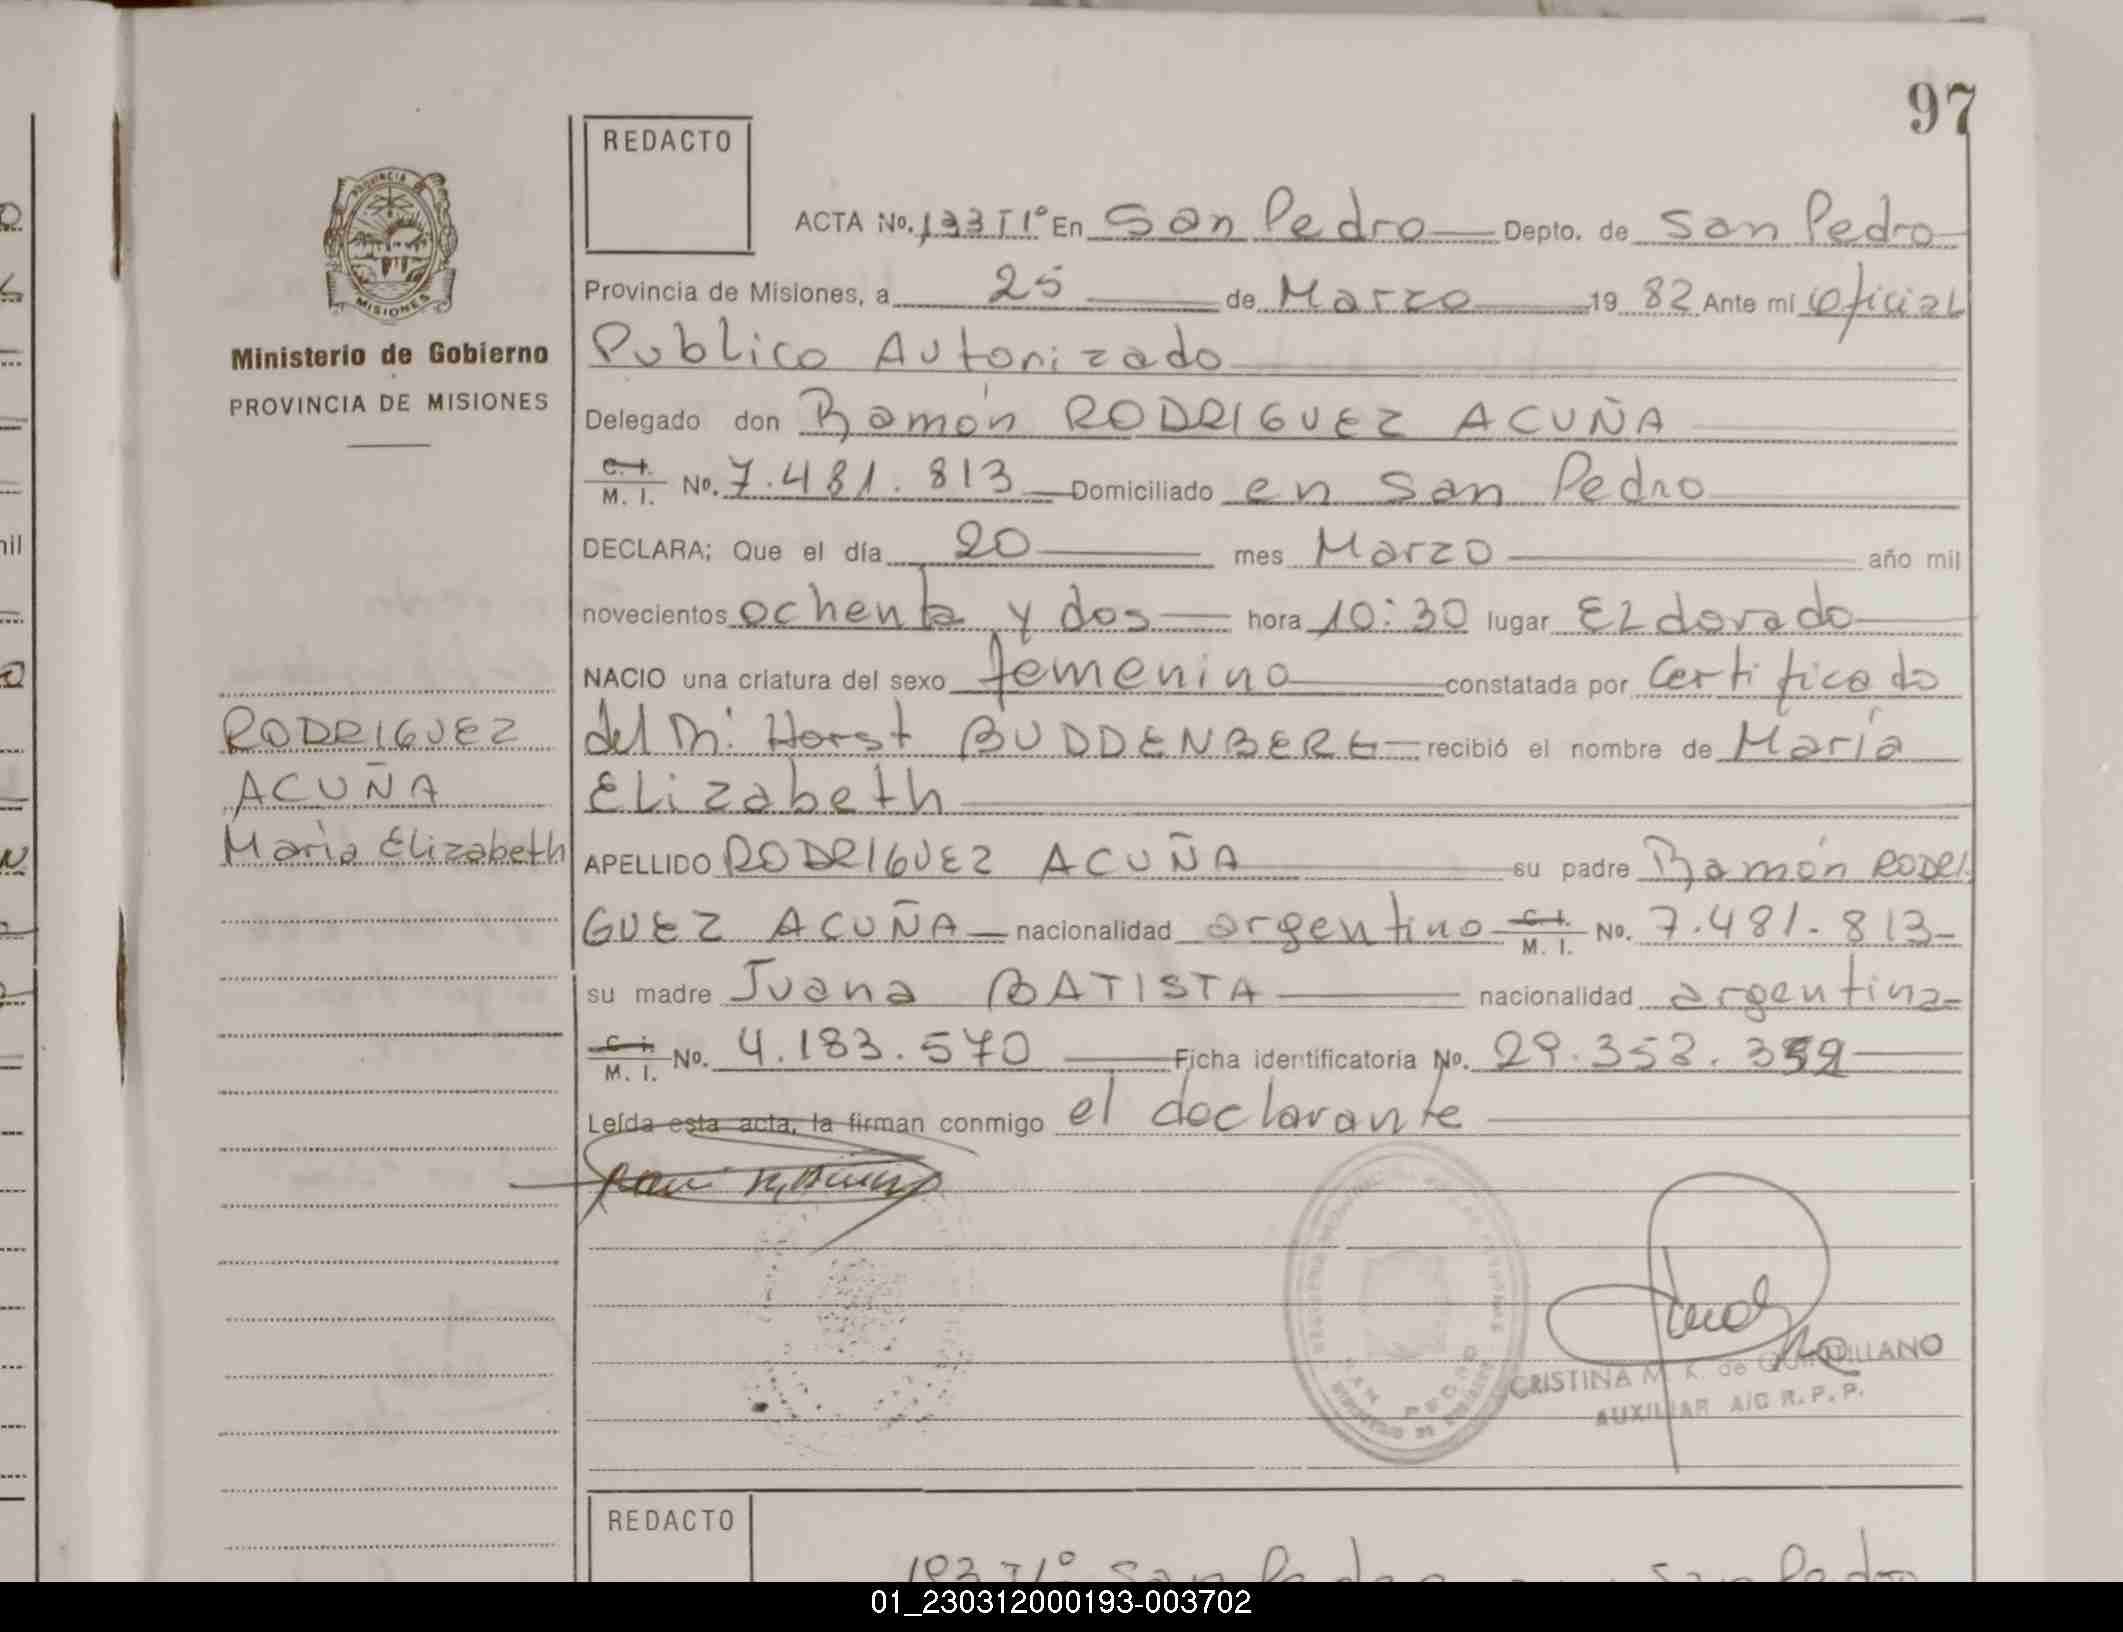 97
REDACTO
ACTA No. 193 T1° En San Pedro Depto. de San Pedro
Provincia de Misiones, a 25 de Marzo 19 82 Ante mi Oficial
Publico Autorizado
Delegado don Ramón RODRIGUEZ ACUÑA
C. I. M. I. No. 7.481.813 Domiciliado en San Pedro
DECLARA; Que el día 20 mes Marzo año mil
novecientos ochenta y dos hora 10:30 lugar ELdorado
NACIO una criatura del sexo femenino constatada por Certificado
del Dr. Horst BUDDENBERG recibió el nombre de María
Elizabeth
APELLIDO RODRIGUEZ ACUÑA su padre Ramón RODRI
GUEZ ACUÑA nacionalidad argentino C. I. M. I. No. 7.481.813
su madre Juana BATISTA nacionalidad argentina
C. I. M. I. No. 4.183.570 Ficha identificatoria No. 29.353.
Leída esta acta, la firman conmigo el declarante
PROVINCIA DE
MISIONES
Ministerio de Gobierno
PROVINCIA DE MISIONES
RODRIGUEZ
ACUÑA
María Elizabeth
SAN PEDRO
CRISTINA M. K. de QUINTILLANO
AUXILIAR A/C R. P. P.
REDACTO
San Pedro San Pedro
01_230312000193-003702